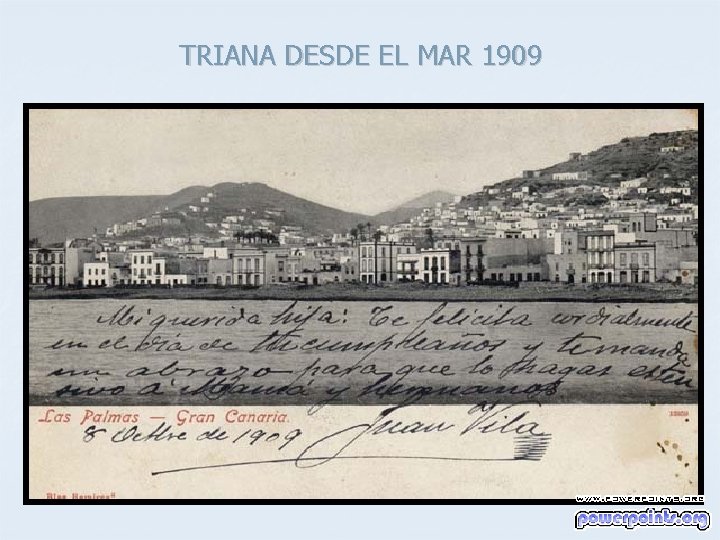 TRIANA DESDE EL MAR 1909
Mi querida hija: Te felicita cordialmente
en el dia de tu cumpleaños y te manda
un abrazo para que lo hagas esten
sivo á Mamá y hermanos
Las Palmas — Gran Canaria.
8 Octbre de 1909 Juan Vila
WWW.POWERPOINTS.ORG
powerpoints.org